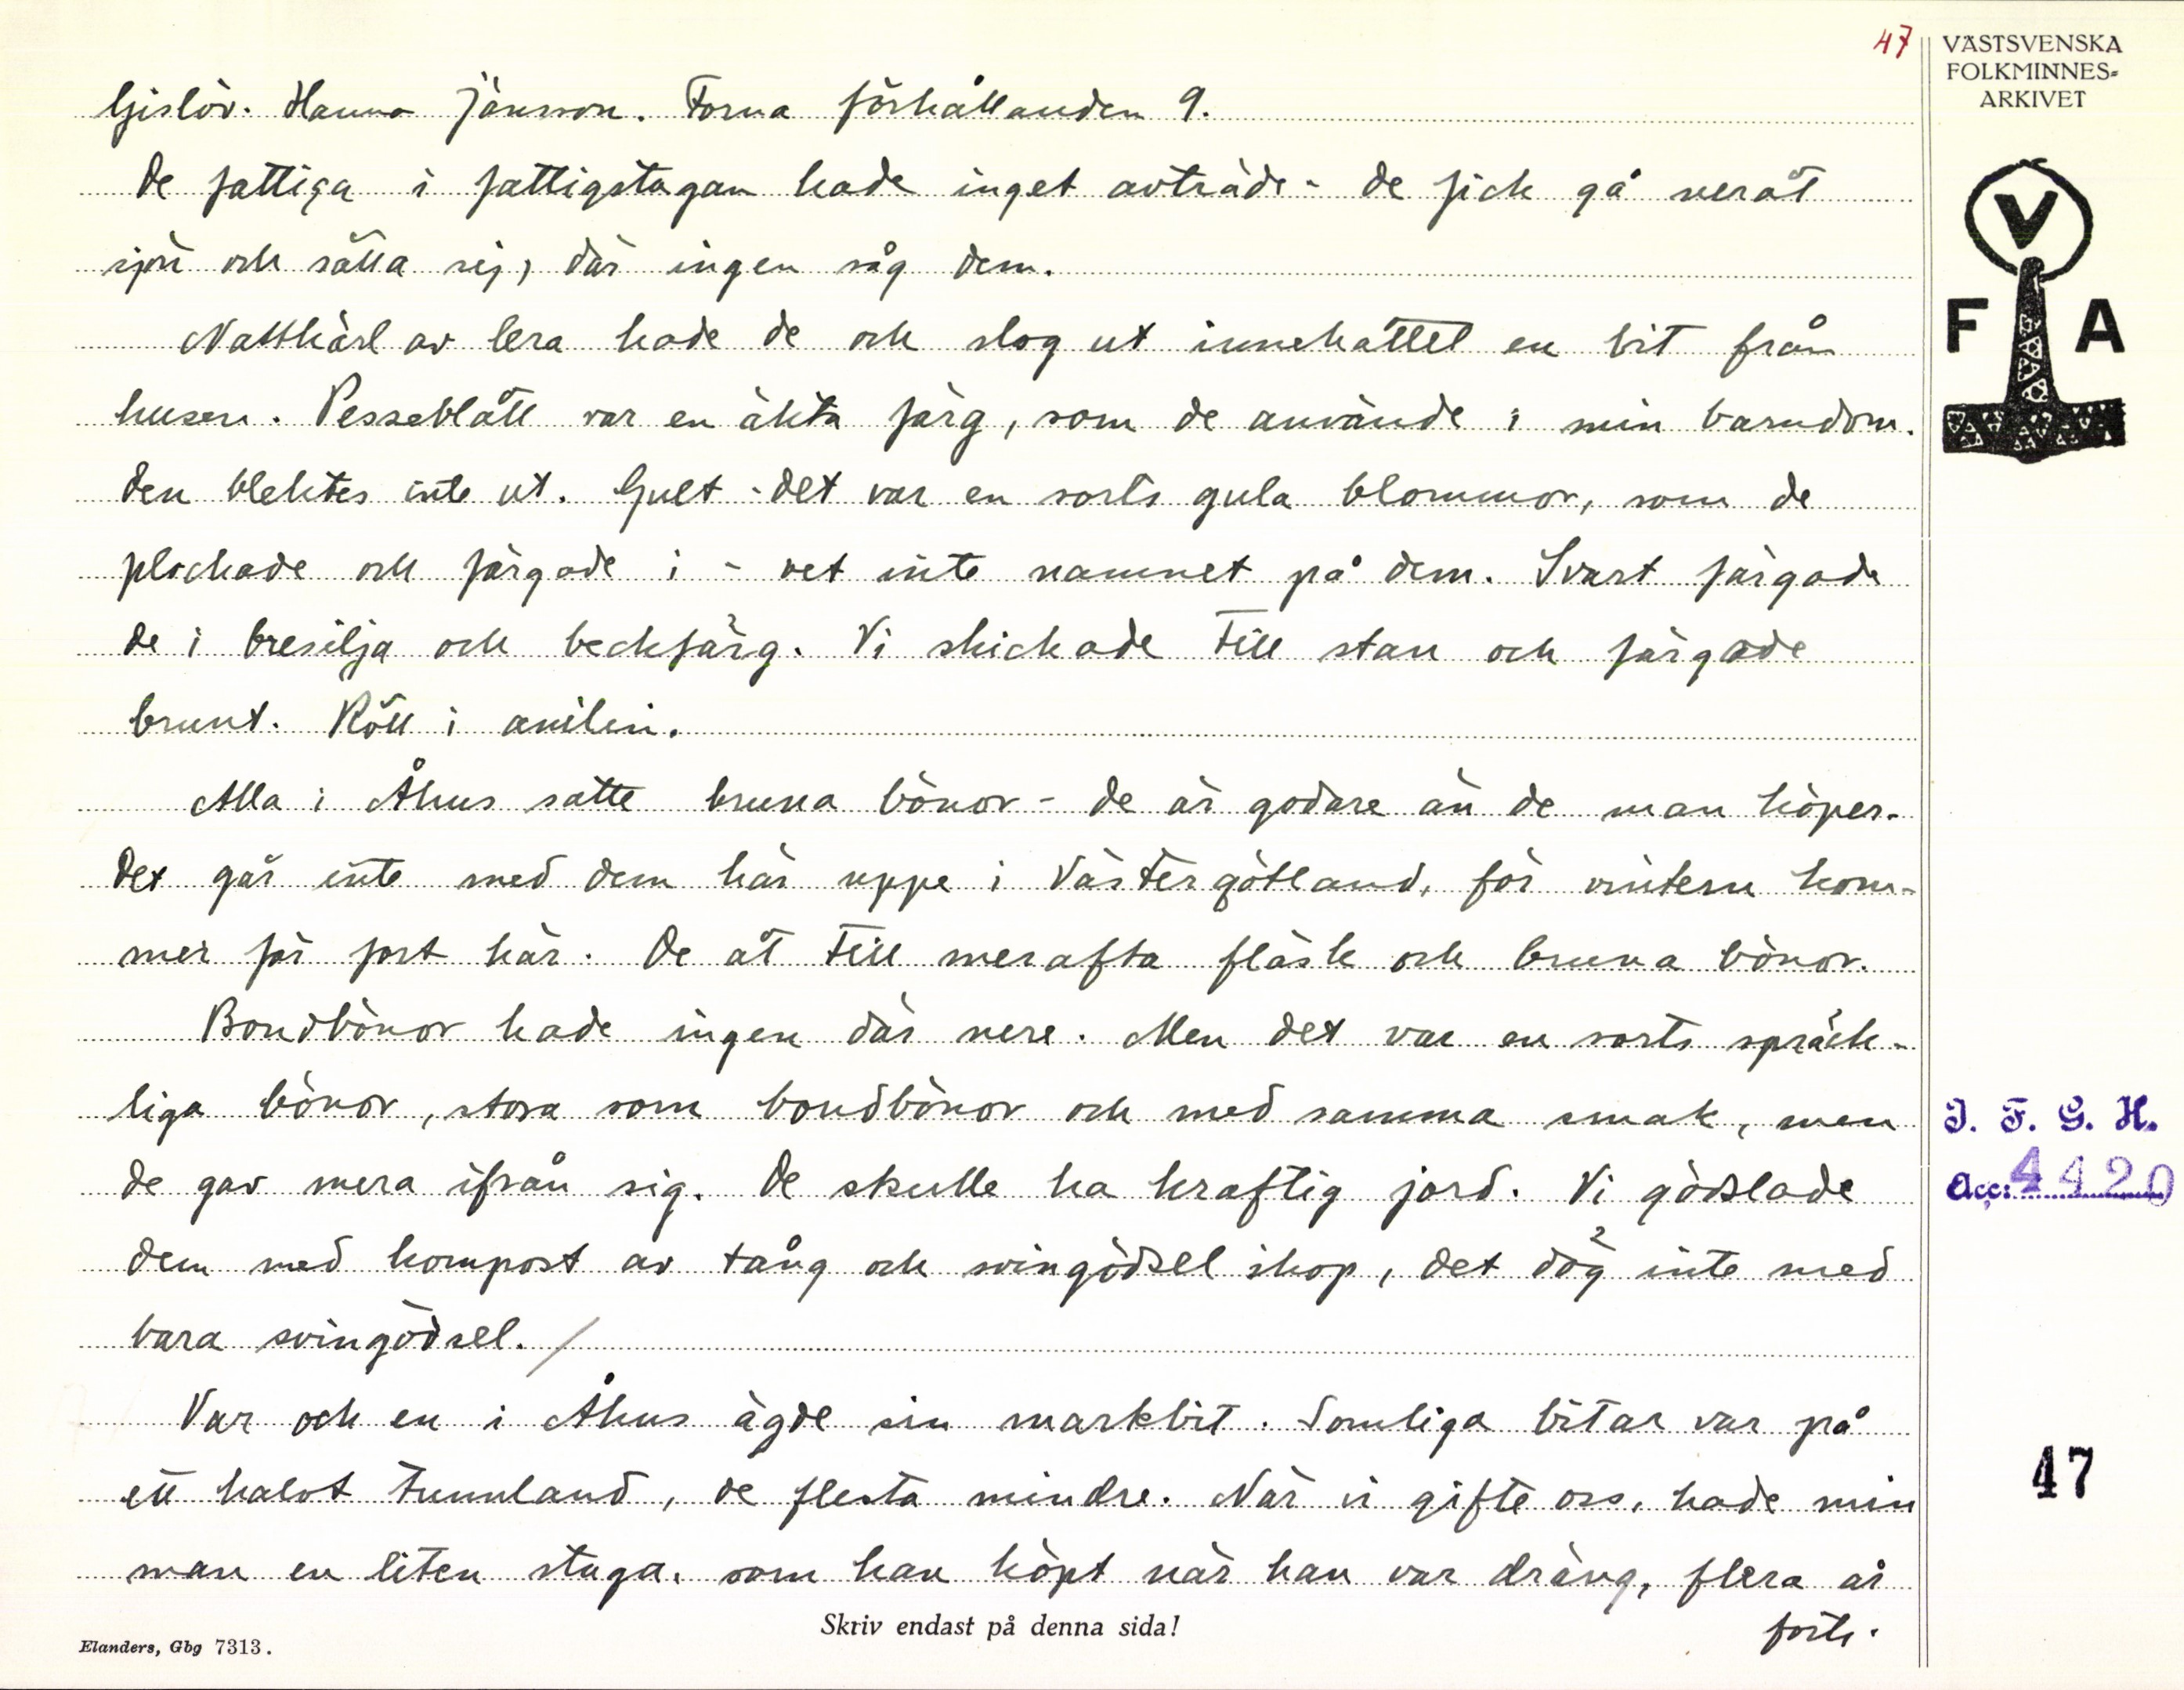 47
VÄSTSVENSKA
FOLKMINNES-
ARKIVET
Gislöv. Hanna Jönsson. Forna förhållanden 9.
De fattiga i fattigstugan hade inget avträde - de fick gå neråt
sjön och sätta sej, där ingen såg dem.
Nattkärl av lera hade de och slog ut innehållet en bit från
husen. Pesseblått var en äkta färg, som de använde i min barndom.
den blektes inte ut. Gult - det var en sorts gula blommor, som de
plockade och färgade i - vet inte namnet på dem. Svart färgade
de i bresilja och beckfärg. Vi skickade till stan och färgade
brunt. Rött i anilin.
Alla i Åhus satte bruna bönor - de är godare än de man köper.
Det går inte med dem här uppe i Västergötland, för vintern kom-
mer för fort här. De åt till merafta fläsk och bruna bönor.
Bondbönor hade ingen där nere. Men det var en sorts späck-
liga bönor, stora som bondbönor och med samma smak, men
de gav mera ifrån sig. De skulle ha kraftig jord. Vi gödslade
dem med kompost av tång och svingödsel ihop, det dög inte med
bara svingödsel. /
Var och en i Åhus ägde sin markbit. Somliga bitar var på
ett halvt tunnland, de flesta mindre. När vi gifte oss, hade min
man en liten stuga, som han köpt när han var dräng, flera år
forts.
V
F A
I. F. G. H.
Acc: 4420
47
Skriv endast på denna sida!
Elanders, Gbg 7313.